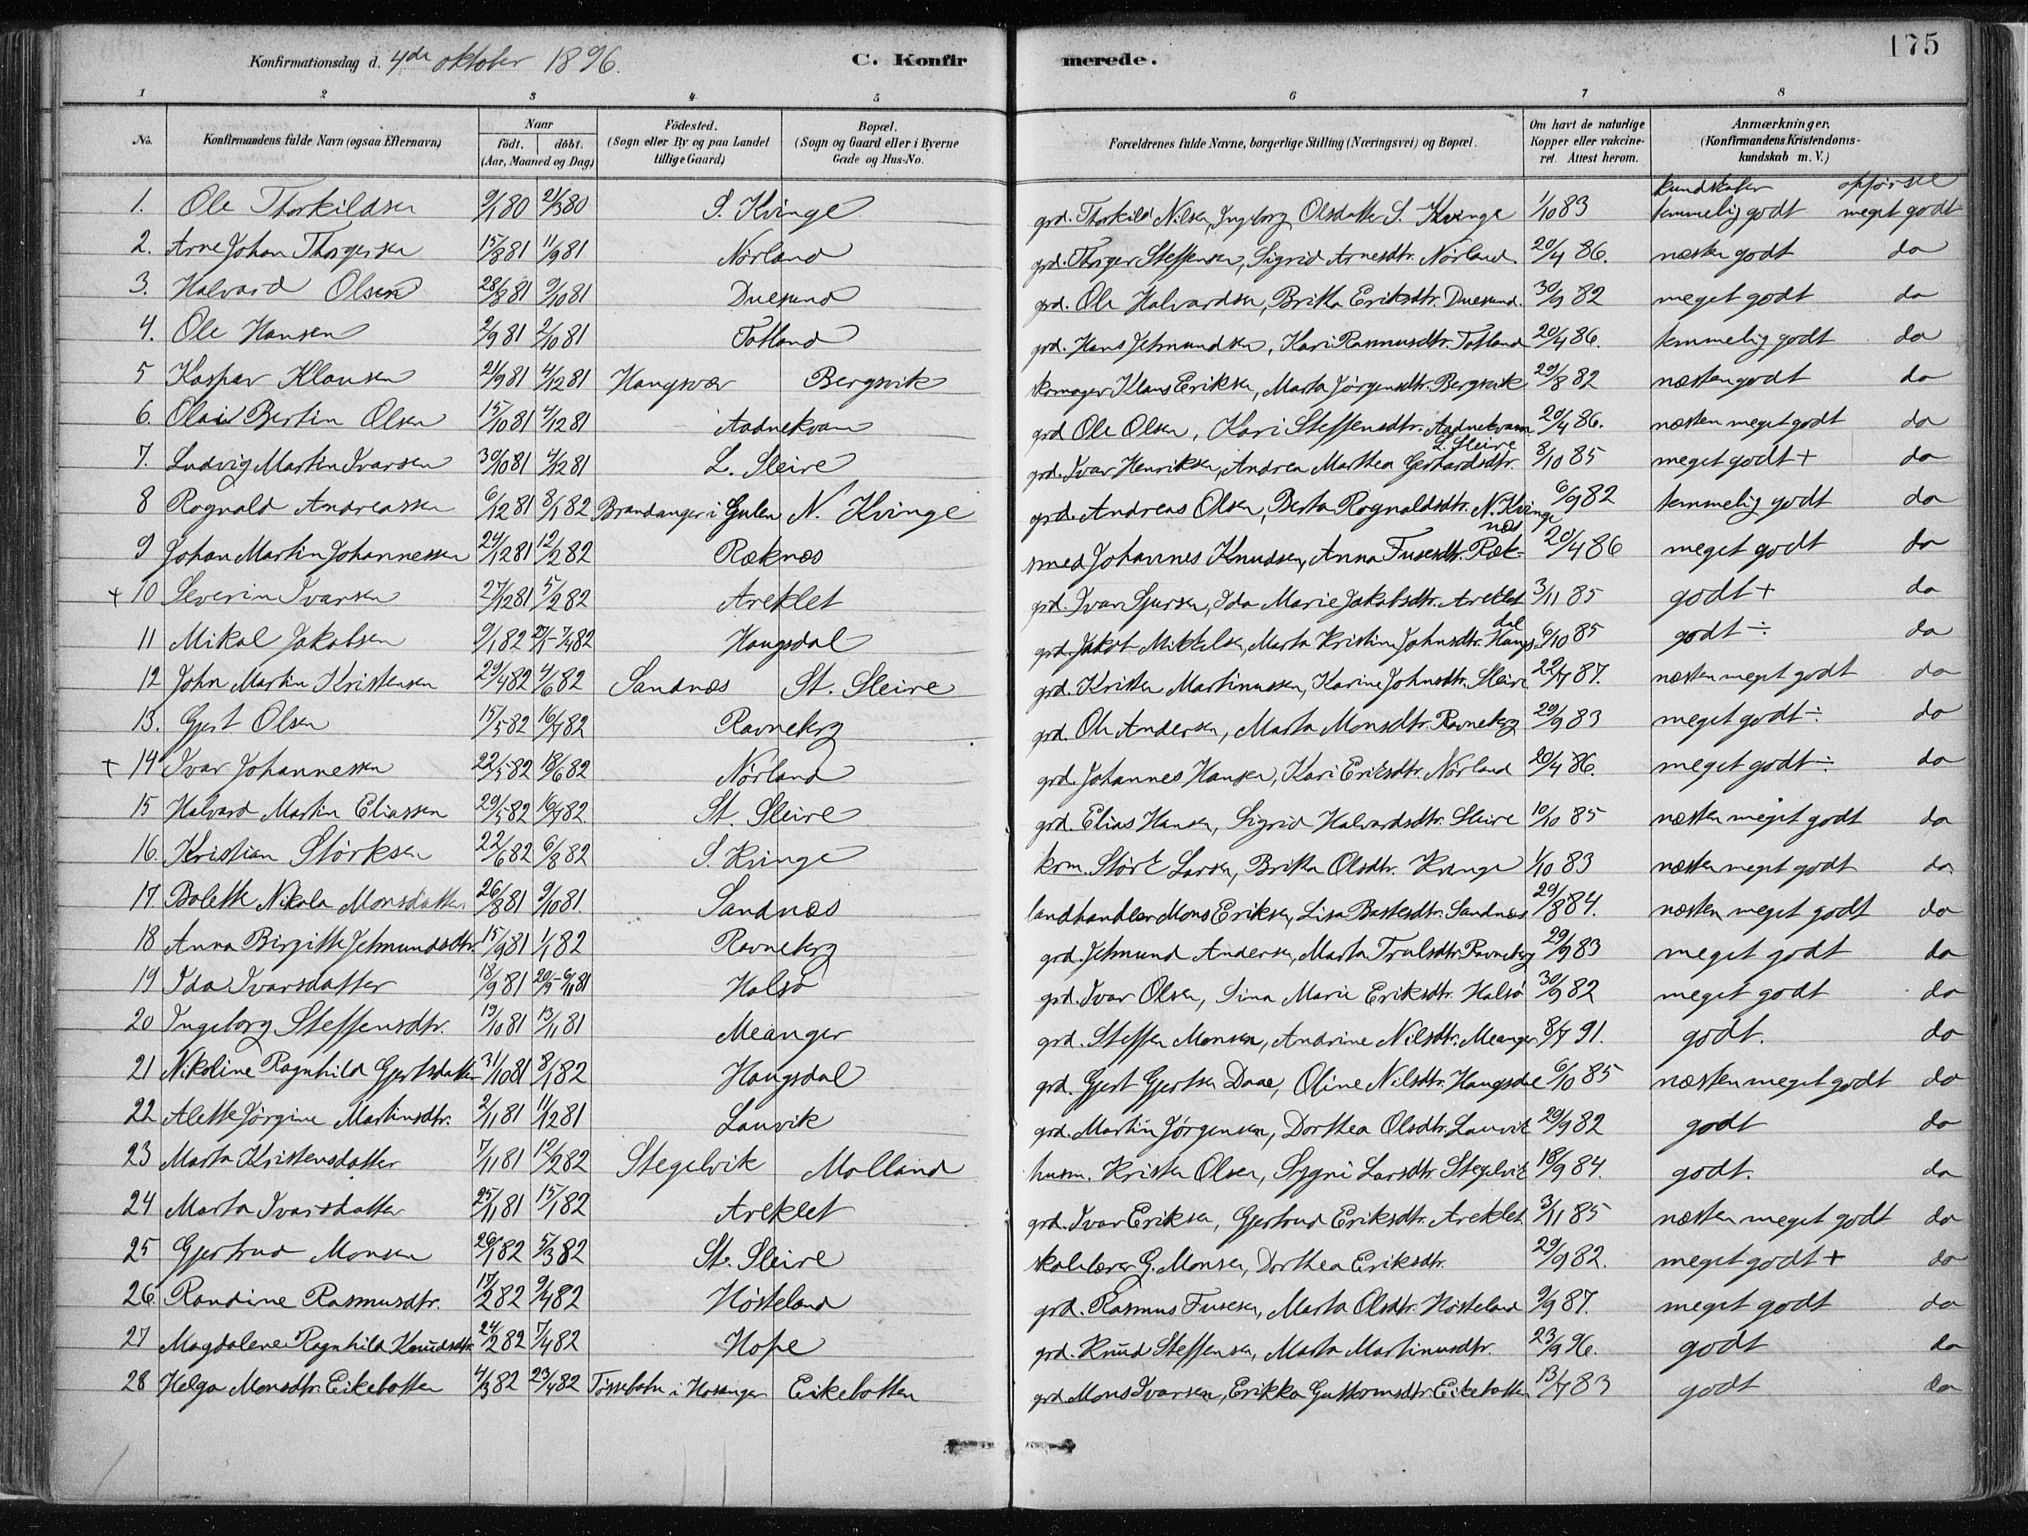 175
Konfirmationsdag d. 4de oktober 1896. C. Konfirmerede.
1 2 3 4 5 6 7 8
No. Konfirmandens fulde Navn (ogsaa Efternavn) Naar född. döbt. (Aar, Maaned og Dag) Födested. (Sogn eller By og paa Landet tillige Gaard) Bopæl. (Sogn og Gaard eller i Byerne Gade og Hus-No. Forældrenes fulde Navne, borgerlige Stilling (Næringsvei) og Bopæl. Om havt de naturlige Kopper eller vakcineret. Attest herom. Anmærkninger, (Konfirmandens Kristendomskundskab m. V.)
kundskaber opførsel
1. Ole Thorkildsen 9/1 80 21/3 80 S. Kvinge grd. Thorkild Nilsen, Ingeborg Olsdatter S. Kvinge 1/10 83 temmelig godt meget godt
2. Arne Johan Thorgersen 15/8 81 11/9 81 Nørland grd. Thorger Steffensen, Sigrid Arnesdtr. Nørland. 20/4 86. næsten godt do
3. Halvard Olsen 28/8 81 9/10 81 Duesund grd. Ole Halvardsen, Britha Eriksdtr. Duesund. 30/9 82 meget godt do
4. Ole Hansen 2/9 81 2/10 81 Totland grd. Hans Jetmundsen, Kari Rasmusdtr. Totland 20/4 86. temmelig godt do
5 Kaspar Klausen 21/9 81 4/12 81 Haugsvær Bergsvik skomager Klaus Eriksen, Marta Jørgensdtr. Bergsvik 29/8 82 næsten godt do
6. Olai Bertin Olsen 15/10 81 4/12 81 Aadnekvam grd Ole Olsen, Kari Steffensdtr. Aadnekvam 20/4 86. næsten meget godt do
7. Ludvig Martin Ivarsen 30/10 81 4/12 81 L. Sleire grd. Ivar Henriksen, Andrea Marthea Gerhardsdtr. L. Sleire 8/10 85 meget godt + do
8 Rognald Andreassen 6/12 81 8/1 82 Brandanger i Gulen N. Kvinge grd. Andreas Olsen, Berta Rognaldsdtr. N. Kvinge 6/9 82 temmelig godt do
9 Johan Martin Johannessen 24/12 81 12/2 82 Ræknes smed Johannes Knudsen, Anna Fusesdtr. Ræknes 20/4 86 meget godt do
+ 10 Severin Ivarsen 27/12 81 5/2 82 Areklet grd. Ivar Sjursen, Ida Marie Jakobsdtr. Areklet 3/11 85 godt + do
11 Mikal Jakobsen 9/1 82 27/1 - 7/4 82 Haugsdal grd. Jakob Mikkelsen, Marta Kristine Johnsdtr. Haugsdal 6/10 85 godt ÷ do
12 John Martin Kristensen 29/4 82 4/6 82 Sandnæs St. Sleire grd. Kristen Martinussen, Karine Johnsdtr. Sleire 22/7 87. næsten meget godt do
13. Gjert Olsen 15/5 82 16/7 82 Ravneberg grd. Ole Andersen, Marta Monsdtr. Ravneberg 29/9 83 meget godt ÷ do
+ 14 Ivar Johannessen 22/5 82 18/6 82 Nørland grd. Johannes Hansen, Kari Eriksdtr. Nørland 20/4 86. meget godt ÷ do
15 Halvard Martin Eliassen 29/5 82 16/7 82 St. Sleire grd. Elias Hansen, Sigrid Halvardsdtr. Sleire 10/10 85 næsten meget godt do
16. Kristian Størksen 22/6 82 6/8 82 S. Kvinge krm. Størk Larsen, Britha Olsdtr. Kvinge 1/10 83 næsten meget godt do
17 Bolette Nikola Monsdatter 26/8 81 9/10 81. Sandnæs landhandler Mons Eriksen, Lisa Bastesdtr. Sandnæs 29/8 84. næsten meget godt do
18 Anna Birgitte Jetmundsdtr. 15/9 81 1/1 82 Ravneberg grd. Jetmund Andersen, Marta Trulsdtr. Ravneberg 29/9 83 meget godt do
19 Ida Ivarsdatter 18/9 81 20/9 - 6/11 81 Halsø grd. Ivar Olsen, Sina Marie Eriksdtr. Halsø 30/9 82 meget godt do
20 Ingeborg Steffensdtr. 19/10 81 13/11 81 Meanger grd. Steffen Monsen, Andrine Nilsdtr. Meanger 8/7 91. godt. do
21 Nikoline Ragnhild Gjertsdatter 31/10 81 8/1 82 Haugsdal grd. Gjert Gjertsen Daae, Oline Nilsdtr. Haugsdal 6/10 85 næsten meget godt do
22 Alette Jørgine Martinsdtr. 2/11 81 11/12 81 Lauvik grd. Martin Jørgensen, Dorthea Olsdtr. Lauvik 29/9 82 godt do
23 Marta Kristensdatter 7/11 81 12/2 82 Stegelvik Molland husm. Kristen Olsen, Sygni Larsdtr. Stegelvik 18/9 84. godt. do
24 Marta Ivarsdatter 25/11 81 15/1 82 Areklet grd. Ivar Eriksen, Gjertrud Eriksdtr. Areklet 3/11 85 næsten meget godt do
25 Gjertrud Monsen 26/1 82 5/3 82 St. Sleire skolelærer G. Monsen, Dorthea Eriksdtr. 29/9 82. meget godt + do
26. Randine Rasmusdtr. 17/2 82 9/4 82 Høsteland grd. Rasmus Fusesen, Marta Olsdtr. Høsteland 9/9 87. meget godt do
27 Magdalene Ragnhild Knudsdtr. 24/2 82 7/4 82 Hope grd. Knud Steffensen, Marta Martinusdtr. 23/9 96. godt do
28 Helga Monsdtr. Eikebotten 4/3 82 23/4 82 Tøssebotn i Hosanger Eikebotten grd Mons Ivarsen, Erikka Guttormsdtr. Eikebotten 13/7 83 godt do